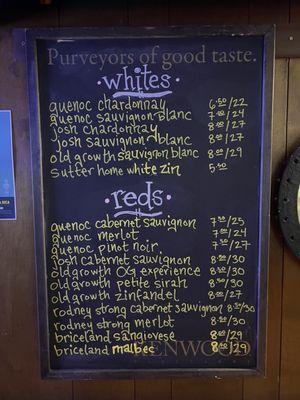 Purveyors of good taste.
whites
guenoc chardonnay 6.50/22
guenoc sauvignon blanc 7.00/24
josh chardonnay 8.00/27
josh sauvignon blanc 8.00/27
old growth sauvignon blanc 8.00/29
sutter home white zin 5.50
reds
guenoc cabernet sauvignon 7.50/25
guenoc merlot 7.00/24
guenoc pinot noir. 7.50/27
josh cabernet sauvignon 8.00/30
old growth OG experience 8.50/30
old growth petite sirah 8.50/30
old growth zinfandel 8.00/27
rodney strong cabernet sauvignon 8.50/30
rodney strong merlot 8.50/30
briceland sangiovese 8.00/29
briceland malbec 8.50/29
KENWOOD